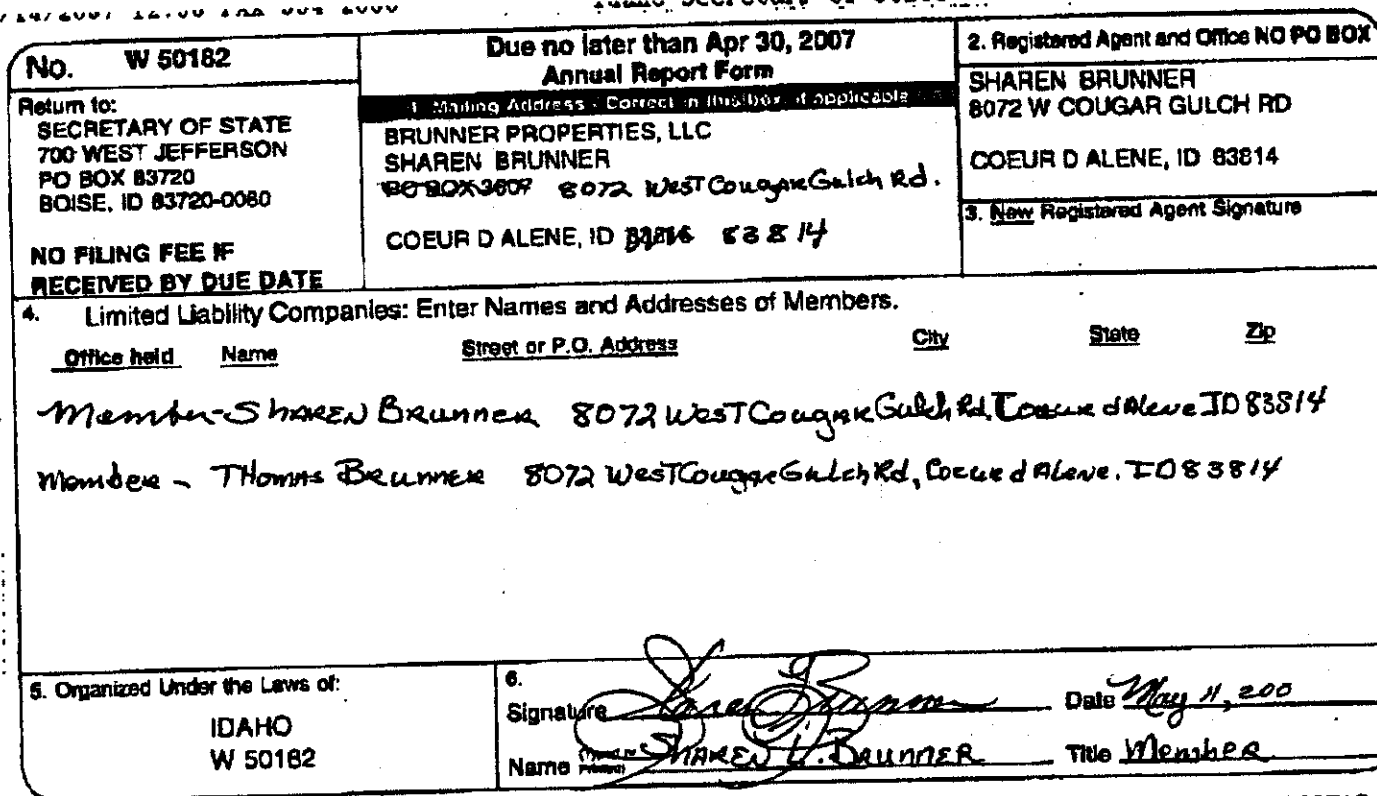 No. W 50182
Return to:
SECRETARY OF STATE
700 WEST JEFFERSON
PO BOX 83720
BOISE, ID 83720-0080
NO FILING FEE IF
RECEIVED BY DUE DATE
Due no later than Apr 30, 2007
Annual Report Form
1. Mailing Address - Correct in this box, if applicable
BRUNNER PROPERTIES, LLC
SHAREN BRUNNER
PO BOX 3607 8072 West Cougar Gulch Rd.
COEUR D ALENE, ID 83816 83814
2. Registered Agent and Office NO PO BOX
SHAREN BRUNNER
8072 W COUGAR GULCH RD
COEUR D ALENE, ID 83814
3. New Registered Agent Signature
4. Limited Liability Companies: Enter Names and Addresses of Members.
Office held Name Street or P.O. Address City State Zip
Member - SHAREN BRUNNER 8072 West Cougar Gulch Rd, Coeur d Alene ID 83814
Member - THOMAS BRUNNER 8072 West Cougar Gulch Rd, Coeur d Alene. ID 83814
5. Organized Under the Laws of:
IDAHO
W 50182
6.
Signature Date May 11, 200
Name SHAREN L. BRUNNER Title Member